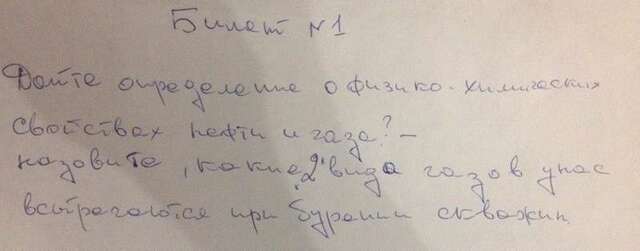 Билет №1
Дайте определение о физико-химических
свойствах нефти и газа? –
назовите, какие 2 вида газов у нас
встречаются при бурении скважин.